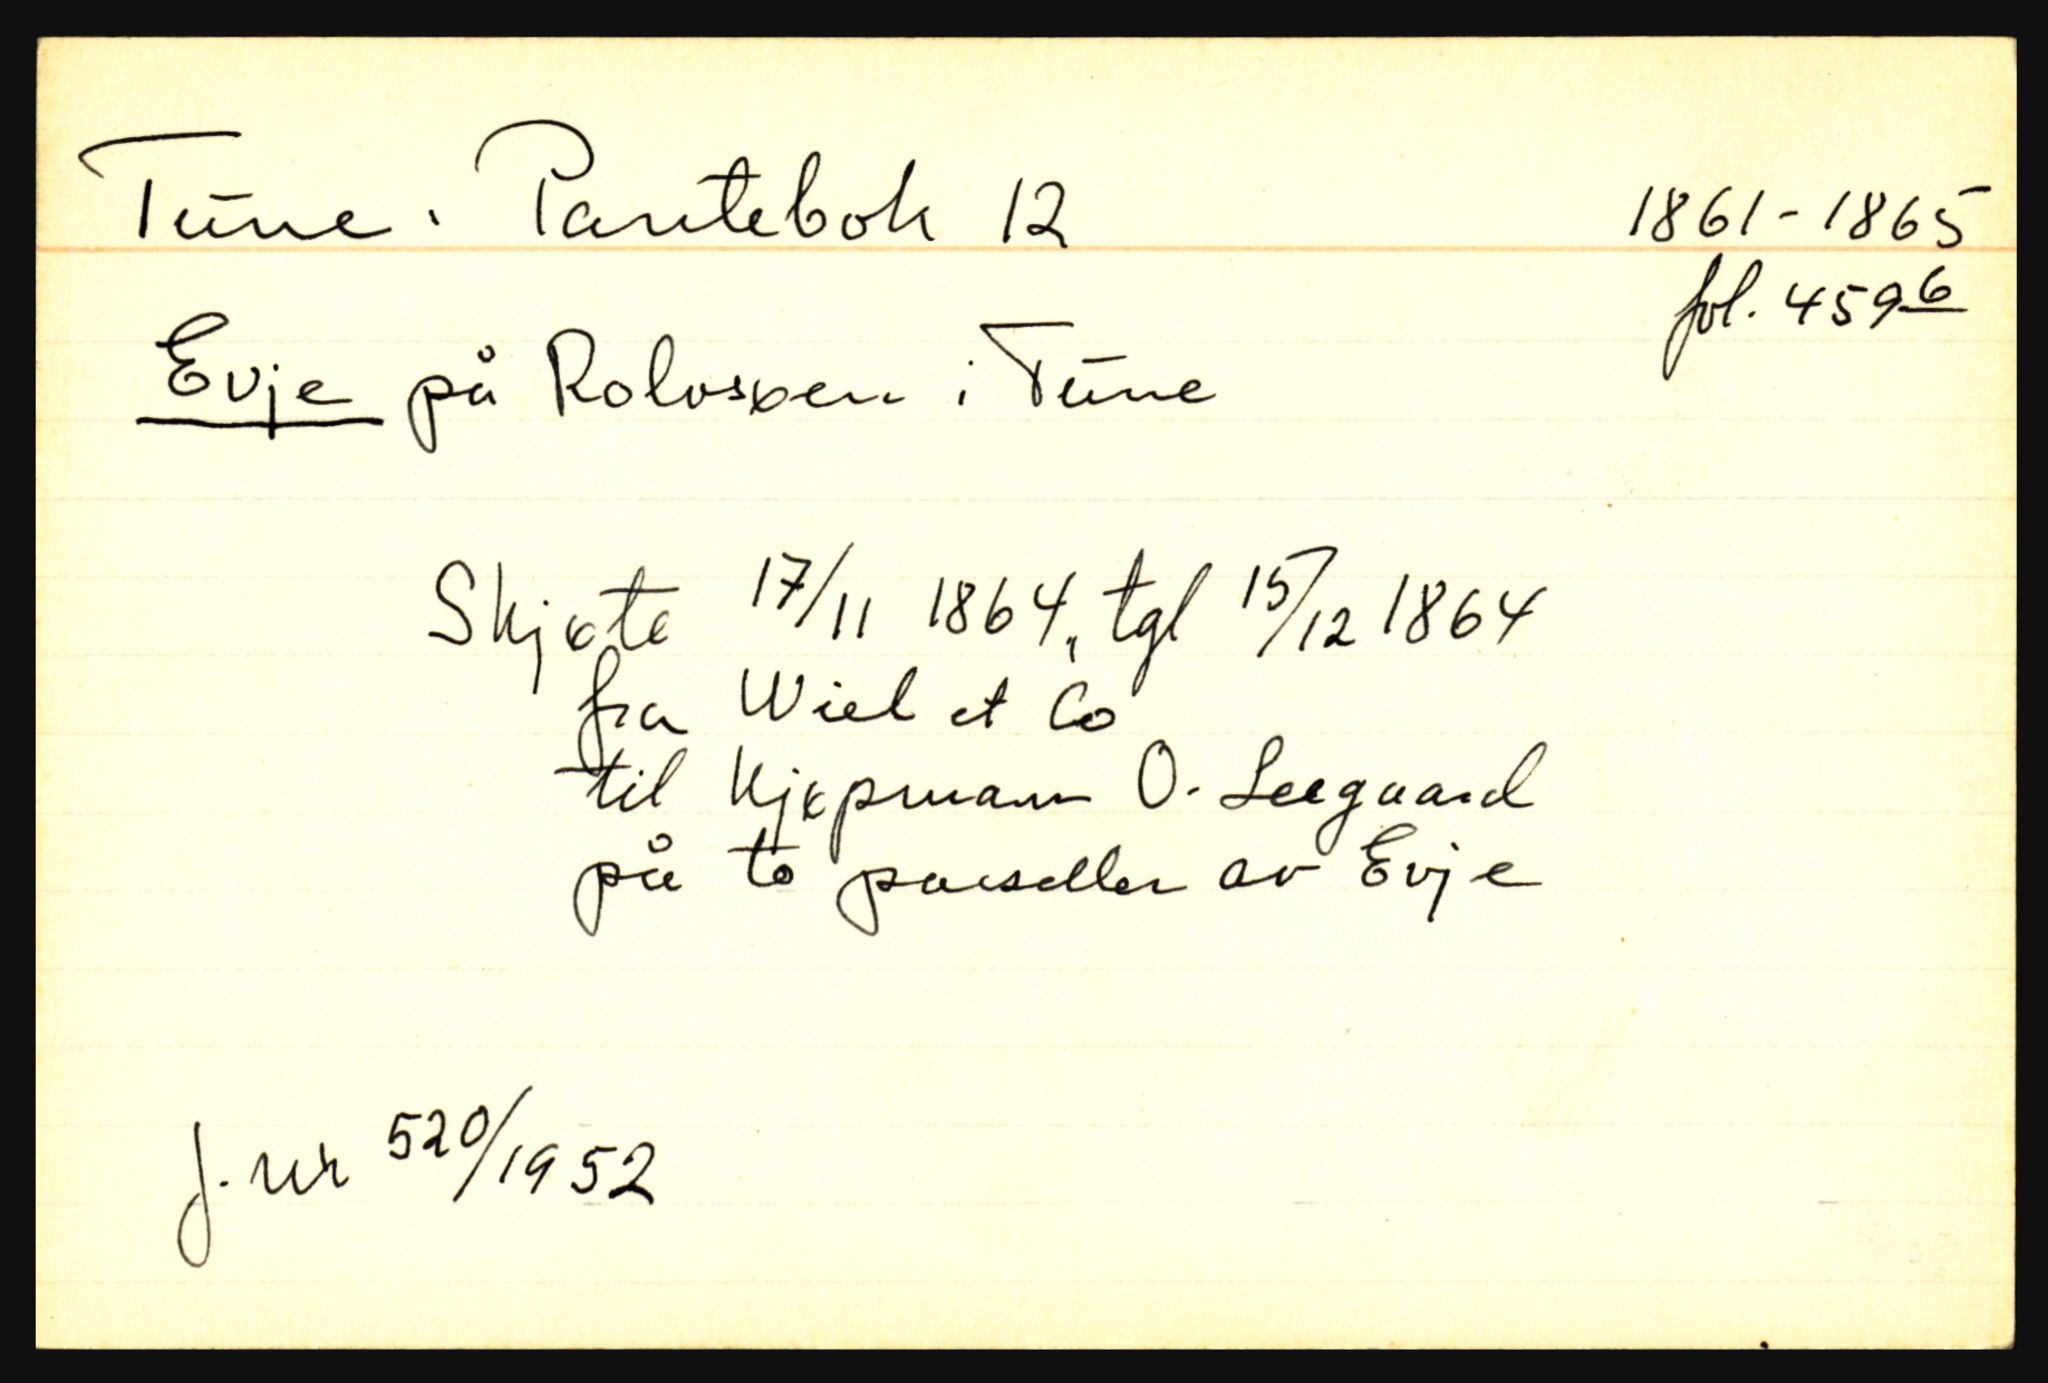 Tune. Pantebok 12
1861-1865
fol. 459 6
Evje på Rolvsøen i Tune
Skjøte 17/11 1864, tgl 15/12 1864
fra Wiel et Co
til Kjøpmann O. Leegaard
på to parseller av Evje
J. nr 520/1952